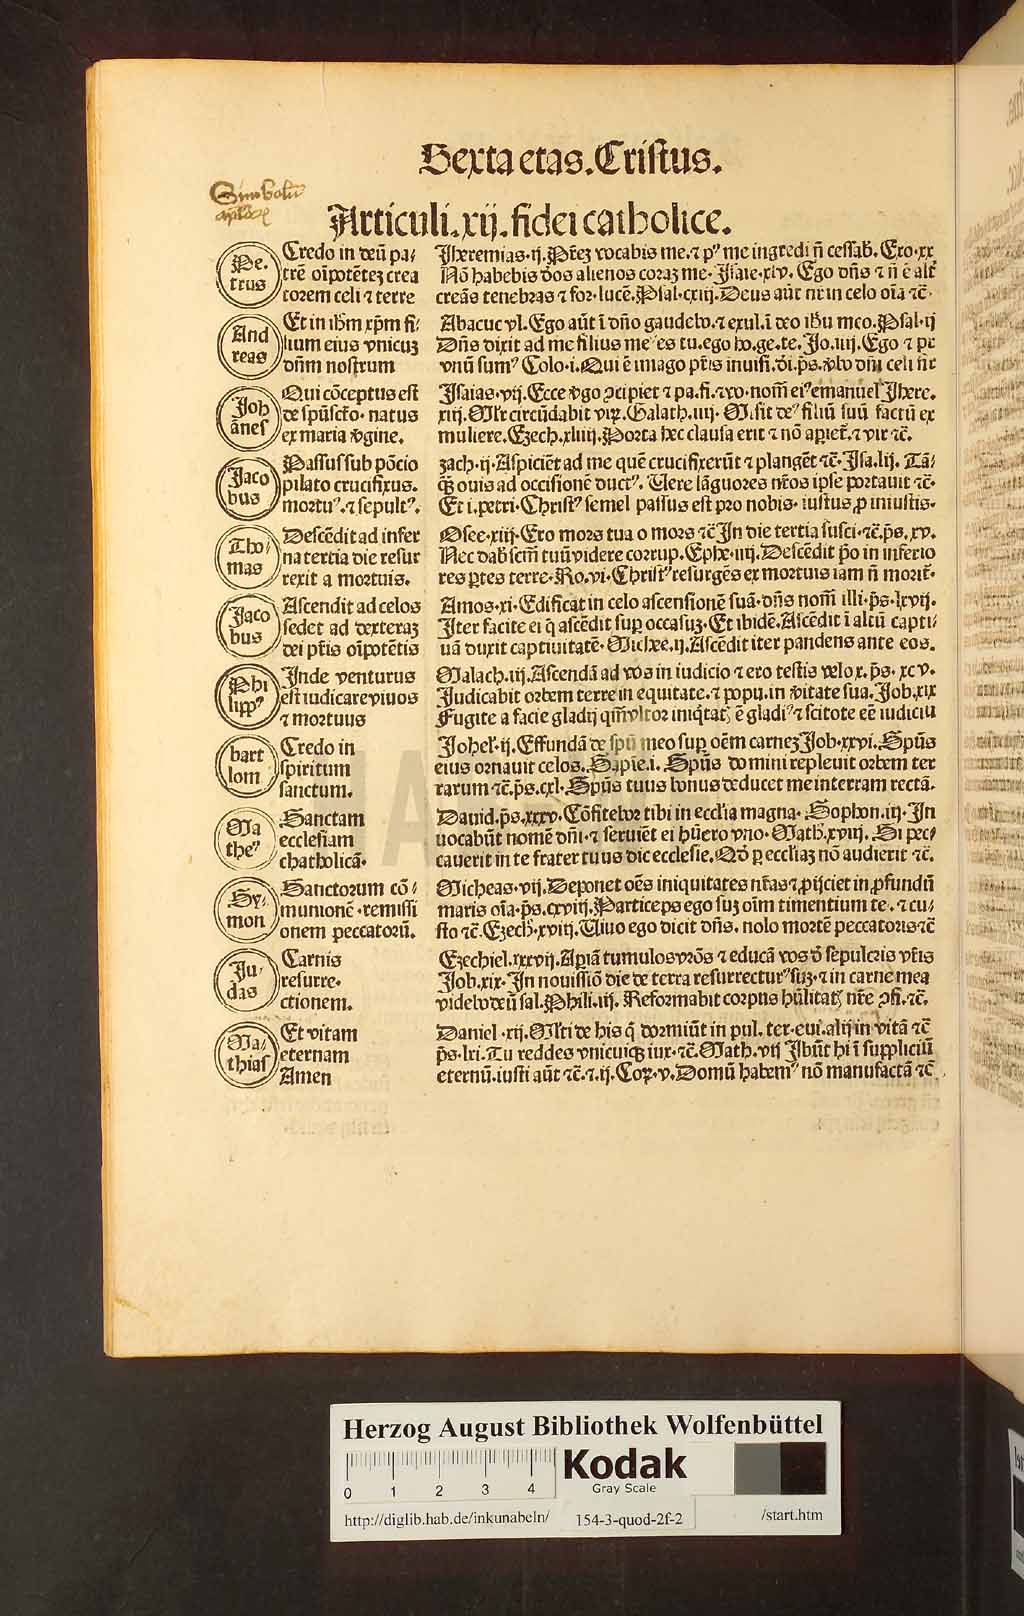 Sexta etas. Cristus.
Simbolū
apl'oꝝ
Articuli .xij. fidei catholice.
Pe.
trus
Credo in deū pa-
trē oīpotētez crea
torem celi ⁊ terre
Jheremias .ij. Prēz vocabis me. ⁊ pꝰ me ingredi ñ cessab. Exo. xx
Nō habebis dos alienos coraz me. Jsaie .xlv. Ego dñs ⁊ ñ ē alt̄
creās tenebras ⁊ for. lucē. Psal. cxiij. Deus aūt nr̄ in celo oīa ⁊c̄.
And
reas
Et in ihm xp̄m fi-
lium eius vnicuz
dn̄m nostrum
Abacuc vl. Ego aūt ī dño gaudebo. ⁊ exul. ī deo ihu meo. Psal. ij
Dñs dixit ad me filius meꝰ es tu. ego ho. ge. te. Jo. iiij. Ego ⁊ pr̄
vnū sumꝰ Colo. i. Qui ē imago pr̄is inuisi. dī. p̄s. vbo dñi celi fir̄
Joh
ānes
Qui cōceptus est
de spūsct̄o. natus
ex maria v̄gine.
Jsaias .vij. Ecce v̄go ꝯcipiet ⁊ pa. fi. ⁊ vo. nom̄ eiꝰ emanuel Jhere.
xiij. Mlr̄ circūdabit viꝝ. Galath. iiij. Misit deꝰ filiū suū factū ex
muliere. Ezech. xliiij. Porta hec clausa erit ⁊ nō aꝑiet̄. ⁊ vir ⁊c̄.
Jaco
bus
Passus sub pōcio
pilato crucifixus.
mortuꝰ. ⁊ sepultꝰ.
zach. ij. Aspiciēt ad me quē crucifixerūt ⁊ plangēt ⁊c̄. Jsa. lij. Tā-
qꝫ ouis ad occisionē ductꝰ. Uere lāguores nr̄os ipse portauit ⁊c̄.
Et i. petri. Christꝰ semel passus est pro nobis. iustus ꝓ iniustis.
Tho-
mas
Descēdit ad infer
na tertia die resur
rexit a mortuis.
Osee .xiij. Ero mors tua o mors ⁊c̄ Jn die tertia susci. ⁊c̄. p̄s. xv.
Nec dab scm̄ tuū videre corrup. Ephe. iiij. Descēdit p̄o in inferio
res ꝑtes terre. Ro. vi. Christꝰ resurgēs ex mortuis iam ñ morit̄.
Jaco
bus
Ascendit ad celos
sedet ad dexteraz
dei pr̄is oīpotētis
Amos. xi. Edificat in celo ascensionē suā. dñs nom̄ illi. p̄s. lxvij.
Jter facite ei q̄ ascēdit suꝑ occasuz. Et ibidē. Ascēdit ī altū capti-
uā duxit captiuitatē. Michee. ij. Ascēdit iter pandens ante eos.
Phi
lippꝰ
Jnde venturus
est iudicare viuos
⁊ mortuus
Malach. iij. Ascendā ad vos in iudicio ⁊ ero testis velox. p̄s. xcv.
Judicabit orbem terre in equitate. ⁊ popu. in v̄itate sua. Job. xix
Fugite a facie gladij qm̄ vltor iniqtat̄ ē gladiꝰ ⁊ scitote eē iudiciū
bart
lom
Credo in
spiritum
sanctum.
Johel. ij. Effundā de spū meo suꝑ oēm carnez Job. xxvi. Spūs
eius ornauit celos. Sapīe. i. Spūs domini repleuit orbem ter
rarum ⁊c̄. p̄s. cxl. Spūs tuus bonus deducet me in terram rectā.
Ma
theꝰ
Sanctam
ecclesiam
chatholicā.
Dauid. p̄s. xxxv. Cōfitebor tibi in ecclīa magna. Sophon. iij. Jn
uocabūt nomē dñi. ⁊ seruiēt ei hūero vno. Math. xviij. Si pec-
cauerit in te frater tuus dic ecclesie. Qd̄ ꝑ ecclīaz nō audierit ⁊c̄.
Sy-
mon
Sanctorum cō-
munionē. remissi
onem peccatorū.
Micheas. vij. Deponet oēs iniquitates nr̄as ⁊ ꝓijciet in ꝓfundū
maris oīa. p̄s. cxviij. Particeps ego suz oīm timentium te. ⁊ cu-
sto ⁊c̄. Ezech. xviij. Uiuo ego dicit dñs. nolo mortē peccatoris ⁊c̄
Ju-
das
Carnis
resurre-
ctionem.
Ezechiel. xxxvij. Aꝑiā tumulos vr̄os ⁊ educā vos d̄ sepulcris vr̄is
Job. xix. Jn nouissiō die de terra resurrecturꝰ suz. ⁊ in carne mea
videbo deū sal. Phili. iij. Reformabit corpus hūilitat̄ nr̄e ꝯfi. ⁊c̄.
Ma-
thias
Et vitam
eternam
Amen
Daniel. xij. Mlti de his q̄ dormiūt in pul. ter. eui. alij in vitā ⁊c̄
p̄s. lxi. Tu reddes vnicuiqꝫ iux. ⁊c̄. Math. vij Jbūt hi ī suppliciū
eternū. iusti aūt ⁊c̄. ⁊. ij. Coꝝ. v. Domū habemꝰ nō manufactā ⁊c̄
HAB
Herzog August Bibliothek Wolfenbüttel
0 1 2 3 4
Kodak
Gray Scale
http://diglib.hab.de/inkunabeln/ 154-3-quod-2f-2 /start.htm